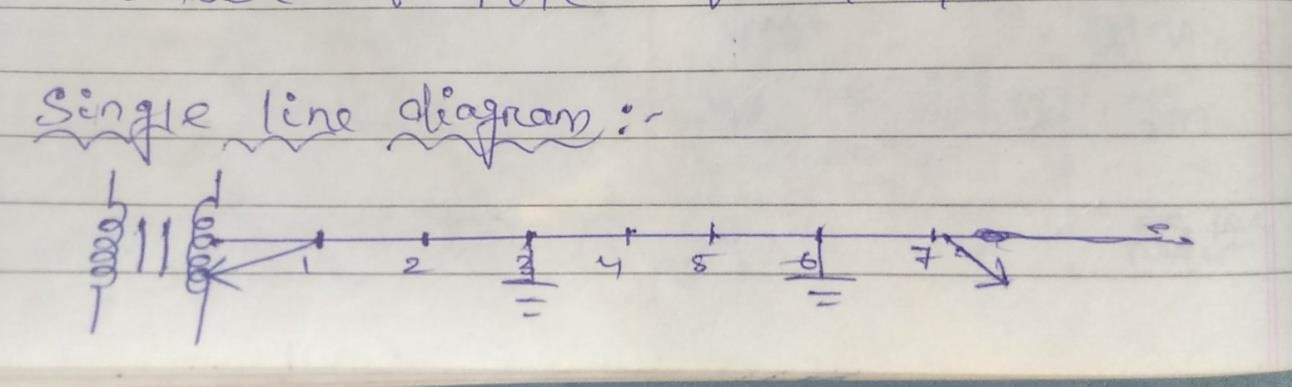 Single line diagram :-
1 2 3 4 5 6 7